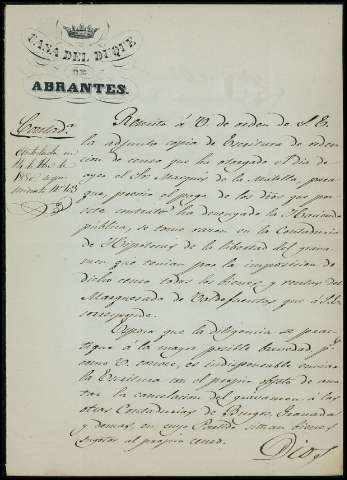 CASA DEL DUQUE
DE
ABRANTES.
Contad.ª
contestada en
1850 segun
minuta nº 123
Remito á V de orden de S. E.
la adjunta copia de Escritura de reden-
cion de censo que ha otorgado el dia de
ayer el Sr. Marques de la Matilla, para
que, previo el pago de los dros que por
este contrato ha devengado la Hacienda
pública, se tome razon en la Contaduria
de Hipotecas de la libertad del grava-
men que tenian por la imposicion de
dicho censo todos los bienes y rentas del
Marquesado de Valdefuentes que á S. E.
corresponde.
Espero que la dilijencia se prac-
tique á la mayor posible brevedad p.ª
como V. conoce, es indispensable enviar
la Escritura con el propio objeto de ano-
tar la cancelacion del gravamen á las
otras Contadurias de Burgos, Granada
y demas, en cuyo Partido sitúan bienes
sugetos al propio censo.
Dios